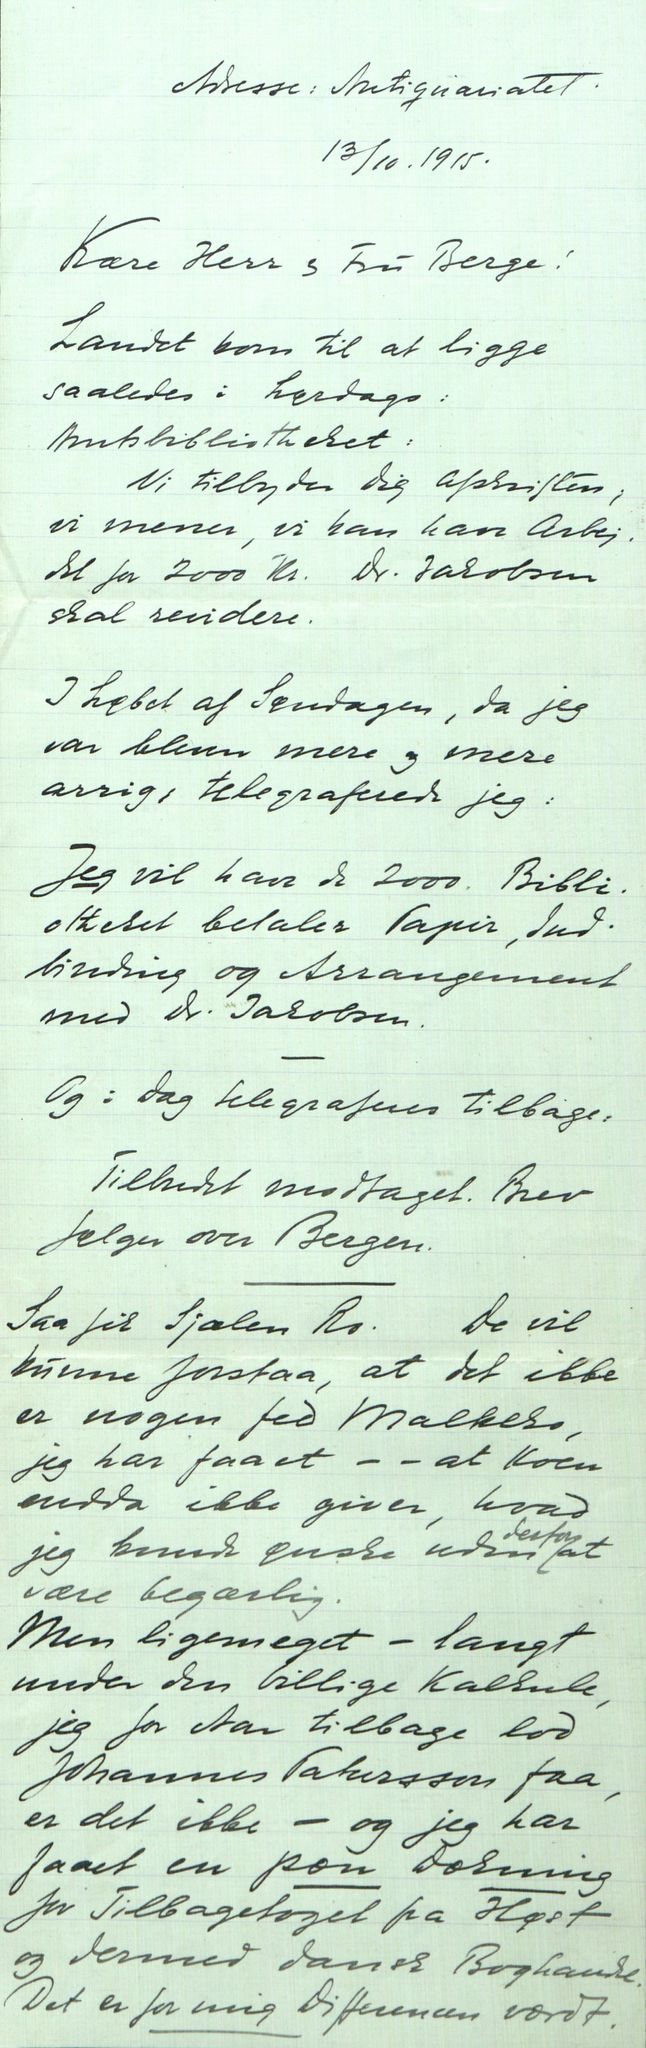 Adresse: Antiquariatet.
13/10. 1915.
Kære Herr & Fru Berge!
Landet kom til at ligge
saaledes i Lørdags:
Amtsbibliotheket:
Vi tilbyder Dig Afskriften,
vi mener, vi kan have Arbej-
det for 2000 Kr. Dr. Jakobsen
skal revidere.
I Løbet af Søndagen, da jeg
var bleven mere & mere
arrig, telegraferede jeg:
Jeg vil have de 2000. Bibli-
otheket betaler Papir, Ind-
binding og Arrangement
med Dr. Jakobsen.
Og i Dag telegraferes tilbage:
Tilbudet modtaget. Brev
følger over Bergen.
Saa fik Sjælen Ro. De vil
kunne forstaa, at det ikke
er nogen fed Malkeko,
jeg har faaet – – at Koen
endda ikke giver, hvad
jeg kunde ønske uden derfor at
være begærlig.
Men ligemeget – langt
under den billige Kalkule,
jeg for Aar tilbage lod
Johannes Patursson faa,
er det ikke – og jeg har
faaet en pæn Dækning
for Tilbagetoget fra Høst
og dermed dansk Boghandel.
Det er for mig Differencen værdt.